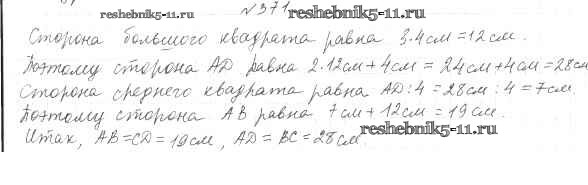 №371
reshebnik5-11.ru reshebnik5-11.ru
Сторона большого квадрата равна 3·4см=12см.
Поэтому сторона AD равна 2·12см+4см=24см+4см=28см
Сторона среднего квадрата равна AD:4=28см:4=7см.
Поэтому сторона AB равна 7см+12см=19см.
Итак, AB=CD=19см, AD=BC=28см.
reshebnik5-11.ru